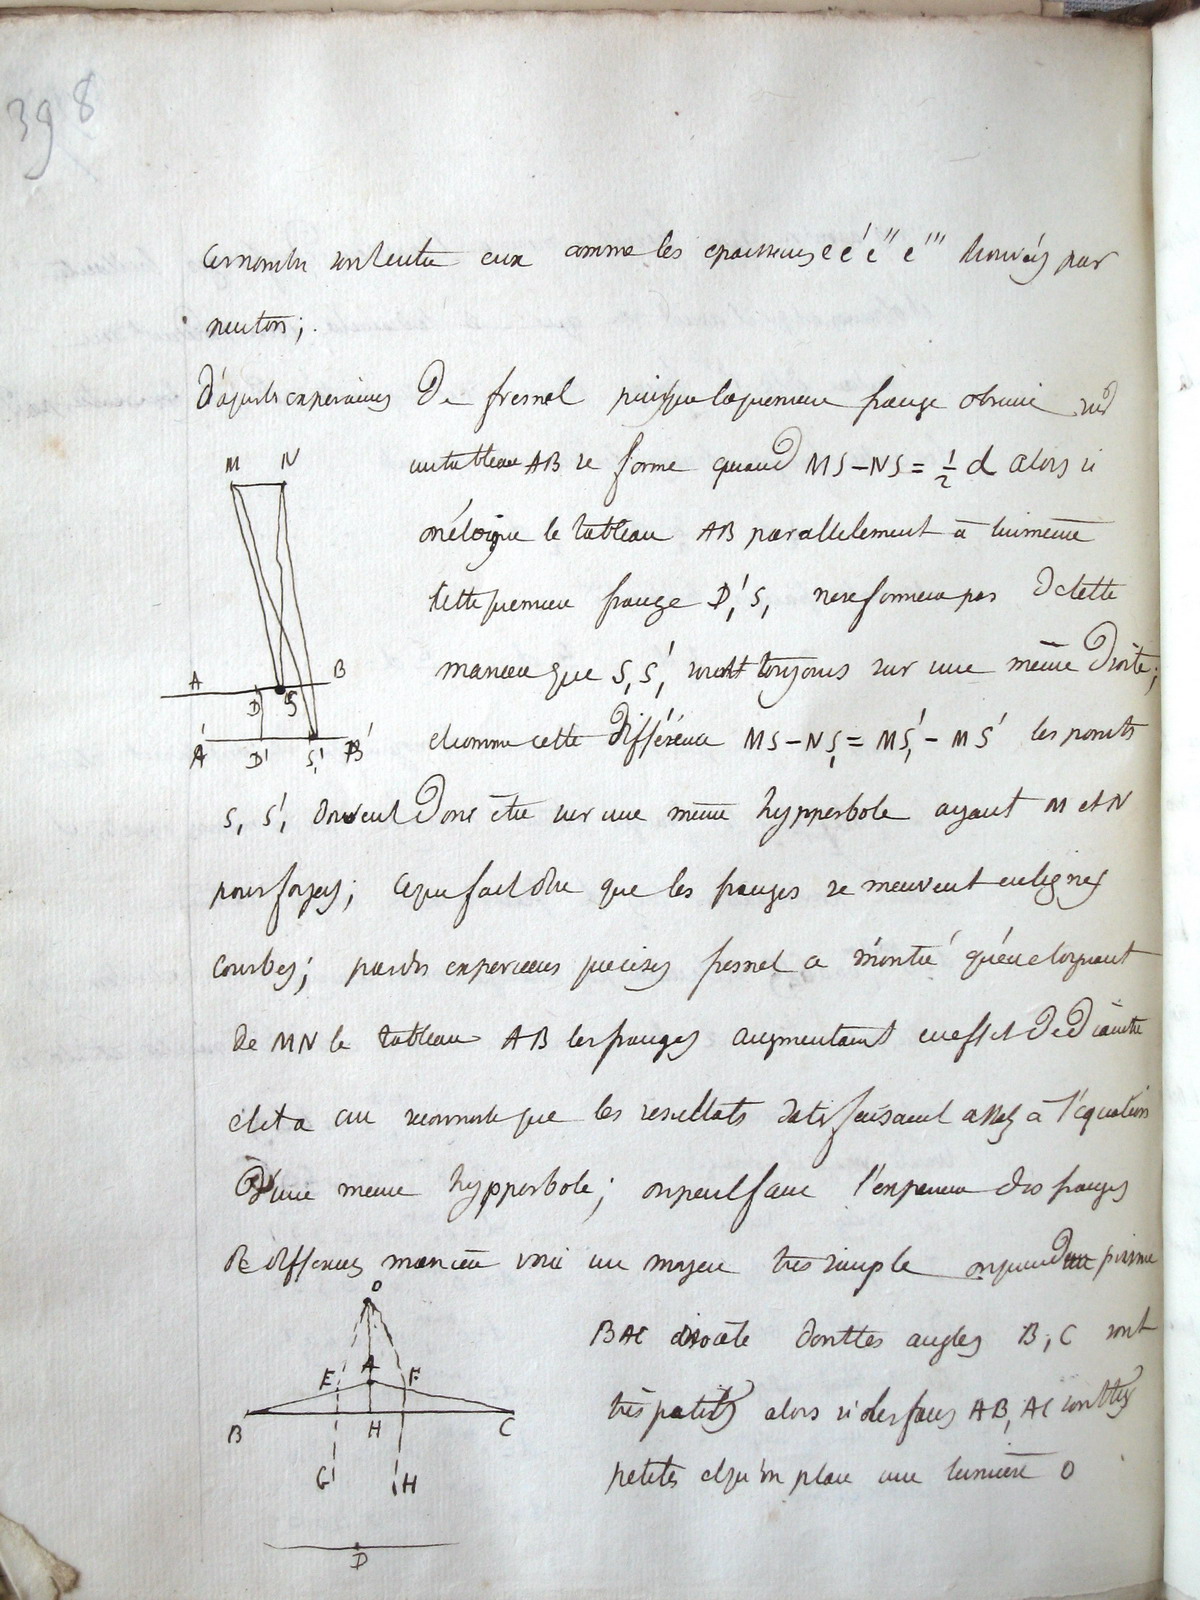 398
ces nombres sont entre eux comme les epaisseurs e e' e'' e''' trouvés par
newton;
D'après les experiences De fresnel puisque la premiere frange obscure sur
un tableau AB se forme quand MS-NS = 1/2 d alors si
on éloigne le tableau AB parallelement à lui même
cette premiere frange D', S, ne se formera pas de telle
maniere que S, S', soient toujours sur une même Droite;
et comme cette différence MS-NS, = MS', - MS' les points
S, S', doivent Donc être sur une même hypperbole ayant M et N
pour foyers; ce qui fait dire que les franges se meuvent en lignes
courbes; par des experiences precises fresnel a montré qu'en eloignant
de MN le tableau AB les franges augmentaient en effet De Diamètre
et a reconnu que les resultats satisfaisaient assez à l'equation
D'une meme hypperbole; on peut faire l'experience des franges
de differentes manieres voici un moyen tres simple on prend un prisme
BAC droite dont les angles B, C sont
très petits alors si les faces AB, AC sont très
petites et qu'on place une lumière O
M N
A B
D S
A' D' S,' B'
O
E A F
B H C
G H
D